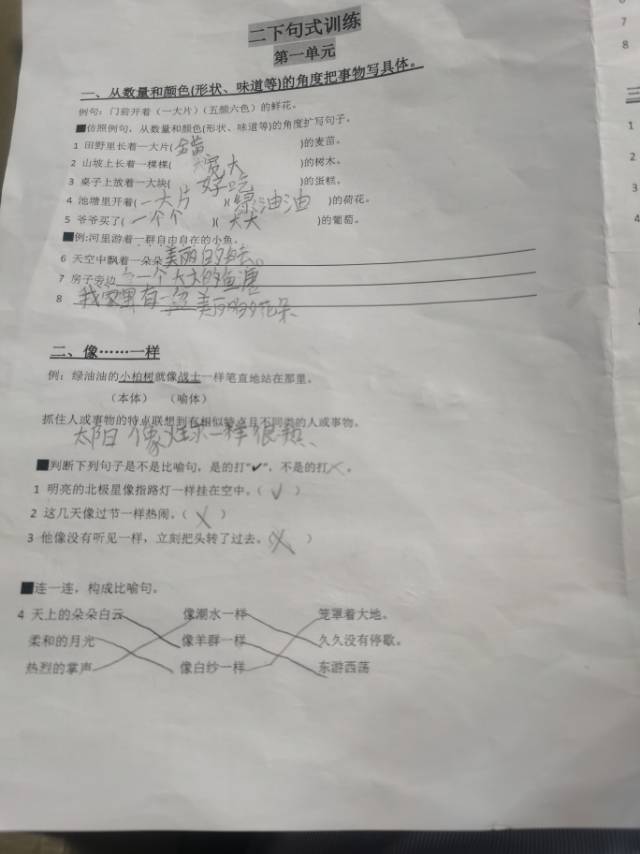 二下句式训练
第一单元
一、从数量和颜色(形状、味道等)的角度把事物写具体。
例句：门前开着（一大片）（五颜六色）的鲜花。
■仿照例句，从数量和颜色(形状、味道等)的角度扩写句子。
1 田野里长着一大片( )的麦苗。
2 山坡上长着一棵棵( 宽大 )的树木。
3 桌子上放着一大块( 好吃 )的蛋糕。
4 池塘里开着( 一大片 )( 绿油油 )的荷花。
5 爷爷买了( 一个个 )( 大大 )的葡萄。
■例:河里游着一群自由自在的小鱼。
6 天空中飘着一朵朵美丽的白云。
7 房子旁边 一个大大的鱼塘
8 我家里有一 美丽的花朵
二、像……一样
例：绿油油的小柏树就像战士一样笔直地站在那里。
（本体） （喻体）
抓住人或事物的特点联想到有相似特点且不同类的人或事物。
太阳像火一样很热、
■判断下列句子是不是比喻句，是的打"✔"，不是的打╳。
1 明亮的北极星像指路灯一样挂在空中。（ √ ）
2 这几天像过节一样热闹。（ ╳ ）
3 他像没有听见一样，立刻把头转了过去。（ ╳ ）
■连一连，构成比喻句。
4 天上的朵朵白云 像潮水一样 笼罩着大地。
柔和的月光 像羊群一样 久久没有停歇。
热烈的掌声 像白纱一样 东游西荡
7
8
三
1
2
3
4